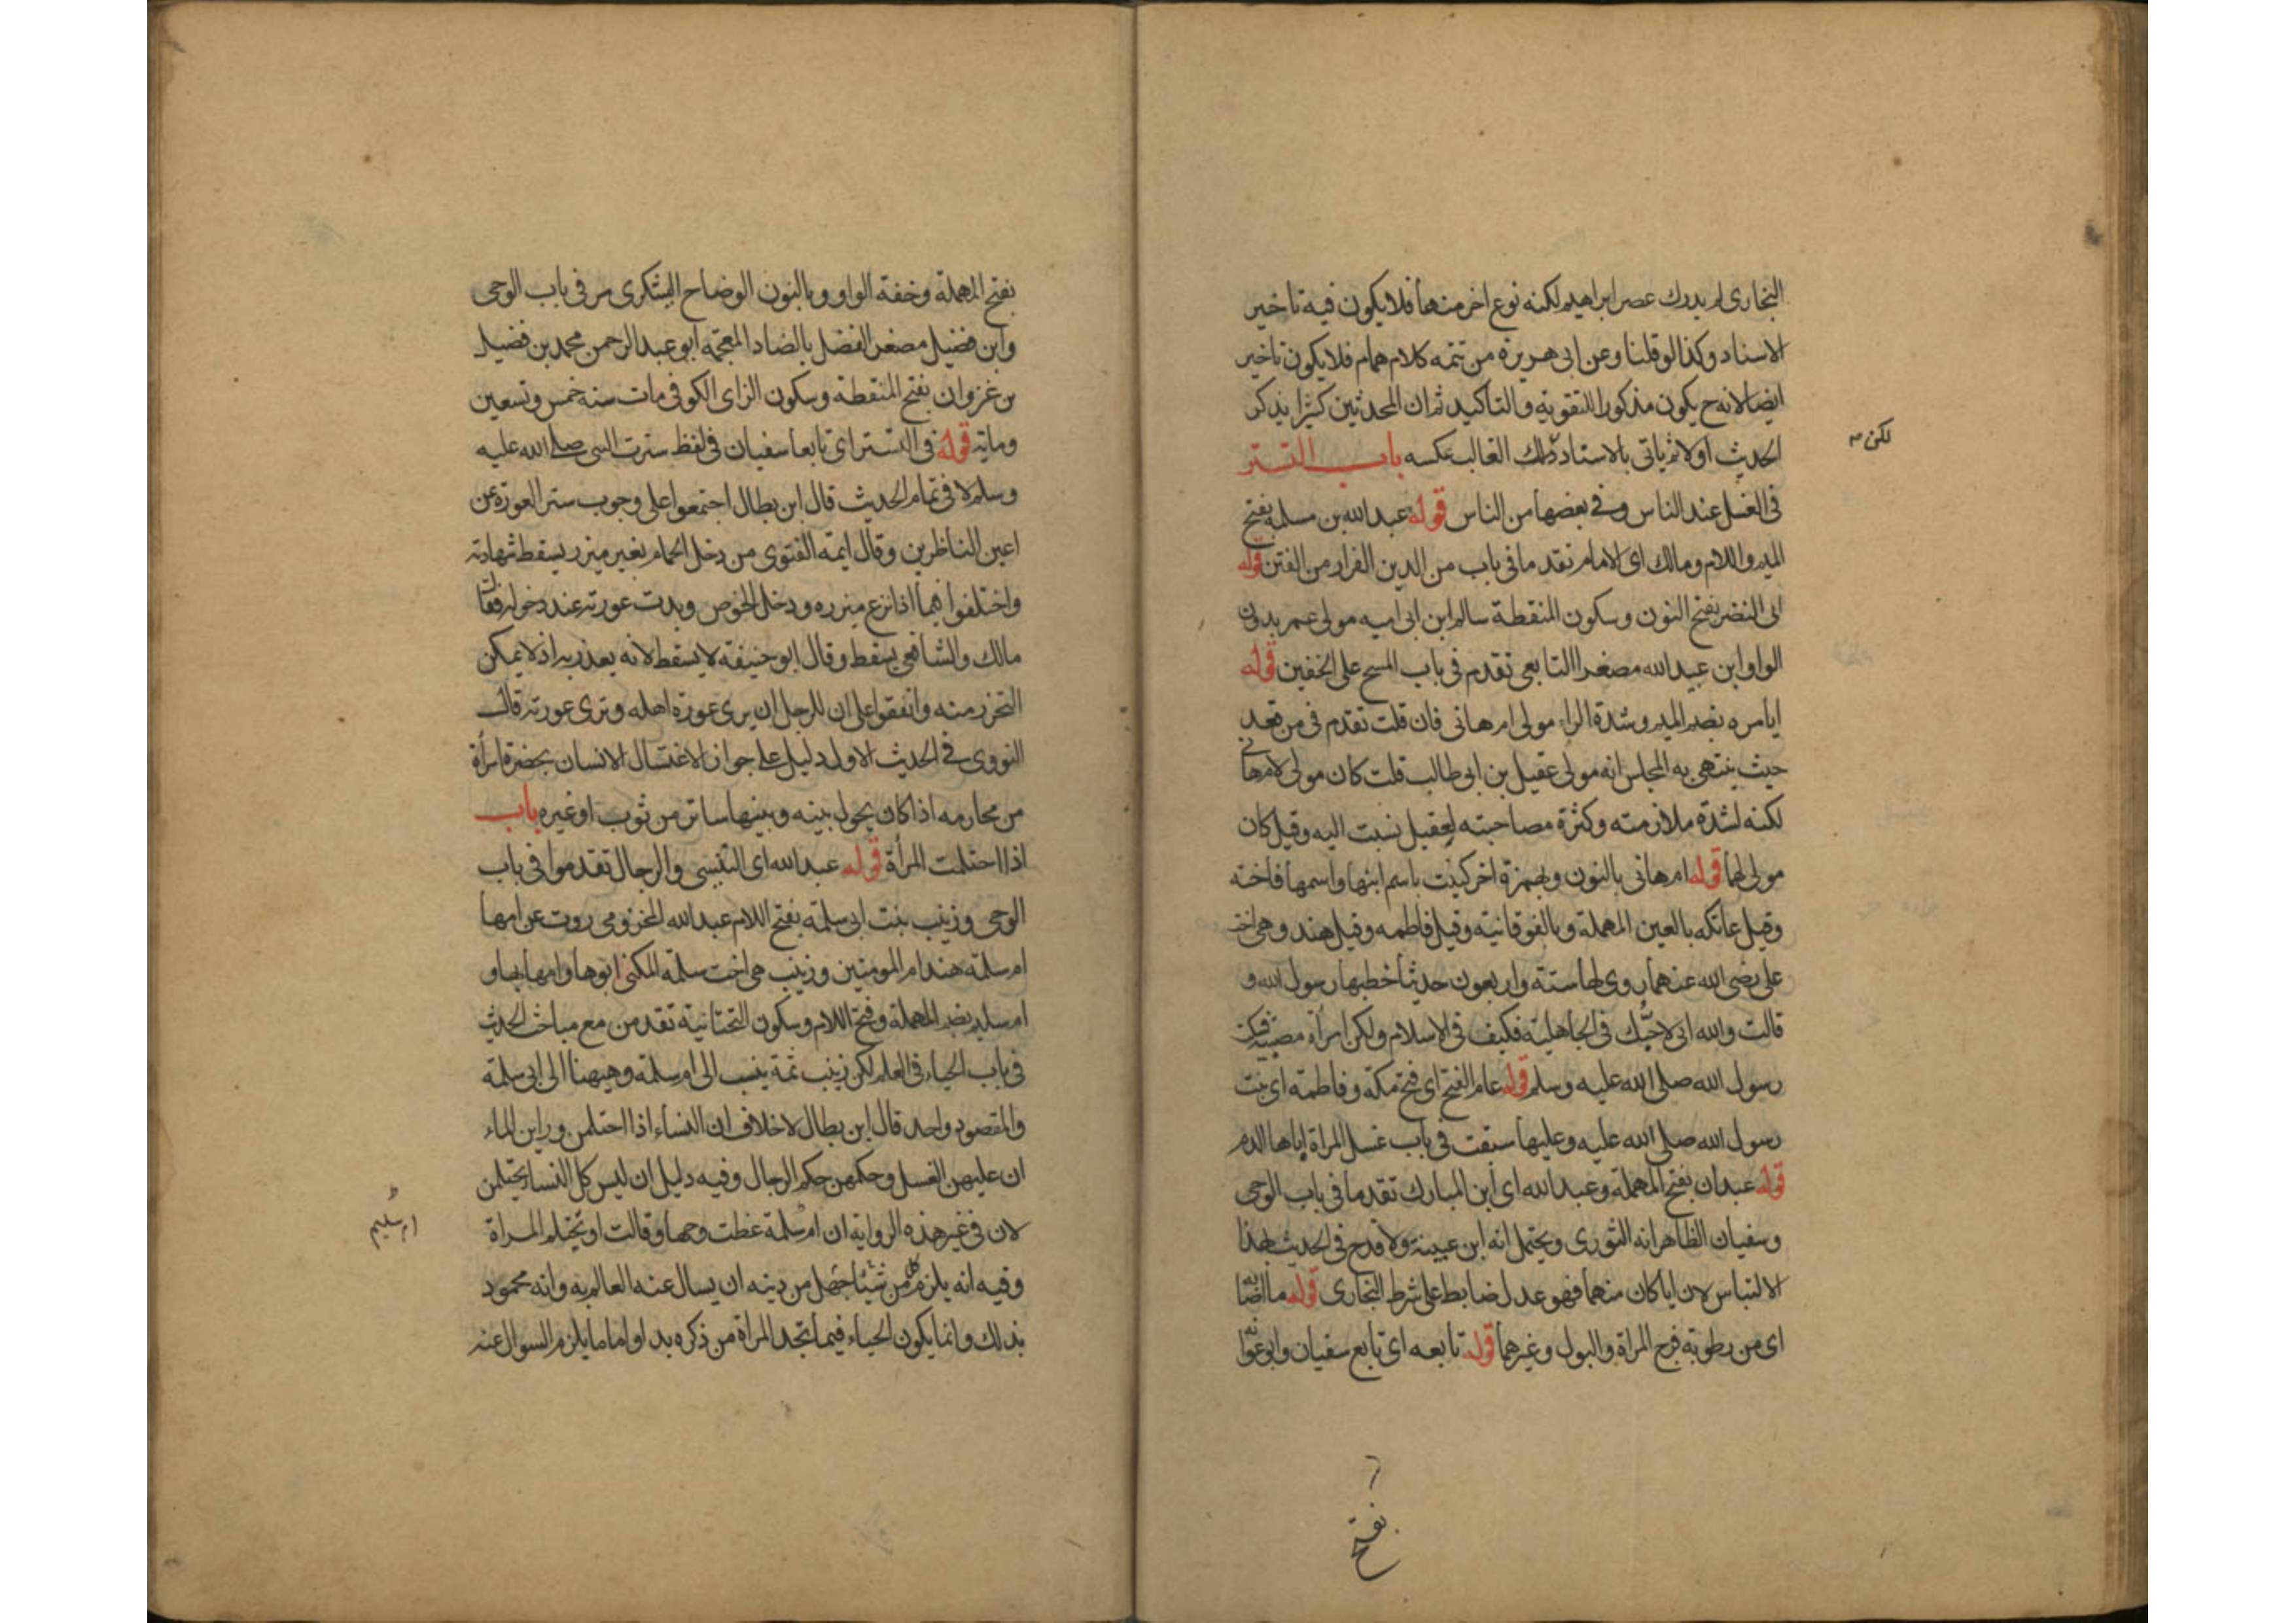 البخارى لم يدرك عصر ابراهيم لكنه نوع اخر منها فلا يكون فيه تاخير
الاسناد وكذا لو قلنا وعن ابى هريرة من تتمه كلام همام فلا يكون تاخير
ايضا لانه ح يكون مذكورا للتقوية والتاكيد ثم ان المحدثين كثيرا يذكر
الحديث اولا ثم ياتى بالاسناد ذلك الغالب عكسه باب التستر
لكن
فى الغسل عند الناس وفى بعضها من الناس قوله عبد الله بن مسلمة بفتح
الميم واللام ومالك اى الامام تقدما فى باب من الدين الفرار من الفتن قوله
ابى النضر بفتح النون وسكون المنقطة سالم ابن ابى اميه مولى عمر بدون
الواو ابن عبيد الله مصغرا التابعى تقدم فى باب المسح على الخفين قوله
ابا مره بضم الميم وشدة الراء مولى ام هانى فان قلت تقدم فى من قعد
حيث ينتهى به المجلس انه مولى عقيل بن ابى طالب قلت كان مولى لام هانى
لكنه لشدة ملازمته وكثرة مصاحبته لعقيل نسبت اليه وقيل كان
مولى لهما قوله ام هانى بالنون وبهمزة اخر كنيت باسم ابنها واسمها فاخته
وقيل عاتكه بالعين المهملة وبالفوقانية وقيل فاطمه وقيل هند وهى اخت
على رضى الله عنهما روى لها ستة واربعون حديثا خطبها رسول الله و
قالت والله انى لاحبك فى الجاهلية فكيف فى الاسلام ولكن امراة مصبية فسكت
رسول الله صلى الله عليه وسلم قوله عام الفتح اى فتح مكة وفاطمة اى بنت
رسول الله صلى الله عليه وعليها سبقت فى باب غسل المراة اباها الدم
قوله عبدان بفتح المهملة وعبد الله اى ابن المبارك تقدما فى باب الوحى
وسفيان الظاهر انه الثورى ويحتمل انه ابن عيينة ولا قدح فى الحديث بهذا
الالتباس لان ايا كان منهما فهو عدل ضابط على شرط البخارى قوله ما اصابه
اى من رطوبة فرج المراة والبول وغيرهما قوله تابعه اى تابع سفيان وابو عوانة
بفتح
بفتح المهملة وخفة الواو وبالنون الوضاح اليشكرى مر فى باب الوحى
وابن فضيل مصغر الفضل بالضاد المعجمه ابو عبد الرحمن محمد بن فضيل
بن غزوان بفتح المنقطة وسكون الزاى الكوفى مات سنه خمس وتسعين
وماية قوله فى التستر اى تابعا سفيان فى لفظ سترت النبى صلى الله عليه
وسلم لا فى تمام الحديث قال ابن بطال اجتمعوا على وجوب ستر العورة عن
اعين الناظرين وقال ايمة الفتوى من دخل الحمام بغير ميزر يسقط شهادته
واختلفوا فيما اذا نزع ميزره ودخل الحوض وبدت عورته عند دخوله فقال
مالك والشافعى يسقط وقال ابو حنيفة لا يسقط لانه يعذر به اذ لا يمكن
التحرز منه واتفقوا على ان للرجل ان يرى عورة اهله وترى عورته قال
النووى فى الحديث الاول دليل على جواز الاغتسال الانسان بحضرة امرأة
من محارمه اذا كان يحول بينه وبينها ساتر من ثوب او غيره باب
اذا احتلمت المرأة قوله عبد الله اى التنيسى والرجال تقدموا فى باب
الوحى وزينب بنت ابى سلمة بفتح اللام عبد الله المخزومى روت عن امها
ام سلمة هند ام المومنين وزينب هى اخت سلمة المكنى ابوها وامها بها و
ام سليم بضم المهملة وفتح اللام وسكون التحتانية تقدمن مع مباحث الحديث
فى باب الحياء فى العلم لكن زينب ثمة ينسب الى ام سلمة وهيهنا الى ابى سلمة
والمقصود واحد قال ابن بطال لا خلاف ان النساء اذا احتلمن وراين الماء
ان عليهن الغسل وحكمهن حكم الرجال وفيه دليل ان ليس كل النساء يحتلمن
لان فى غير هذه الرواية ان ام سلمة غطت وجهها وقالت او تحتلم المراة
ام سليم
وفيه انه يلزم كل من شيئا جهل من دينه ان يسال عنه العالم به وانه محمود
بذلك وانما يكون الحياء فيما تجد المراة من ذكره بدا واما ما يلزم السوال عنه